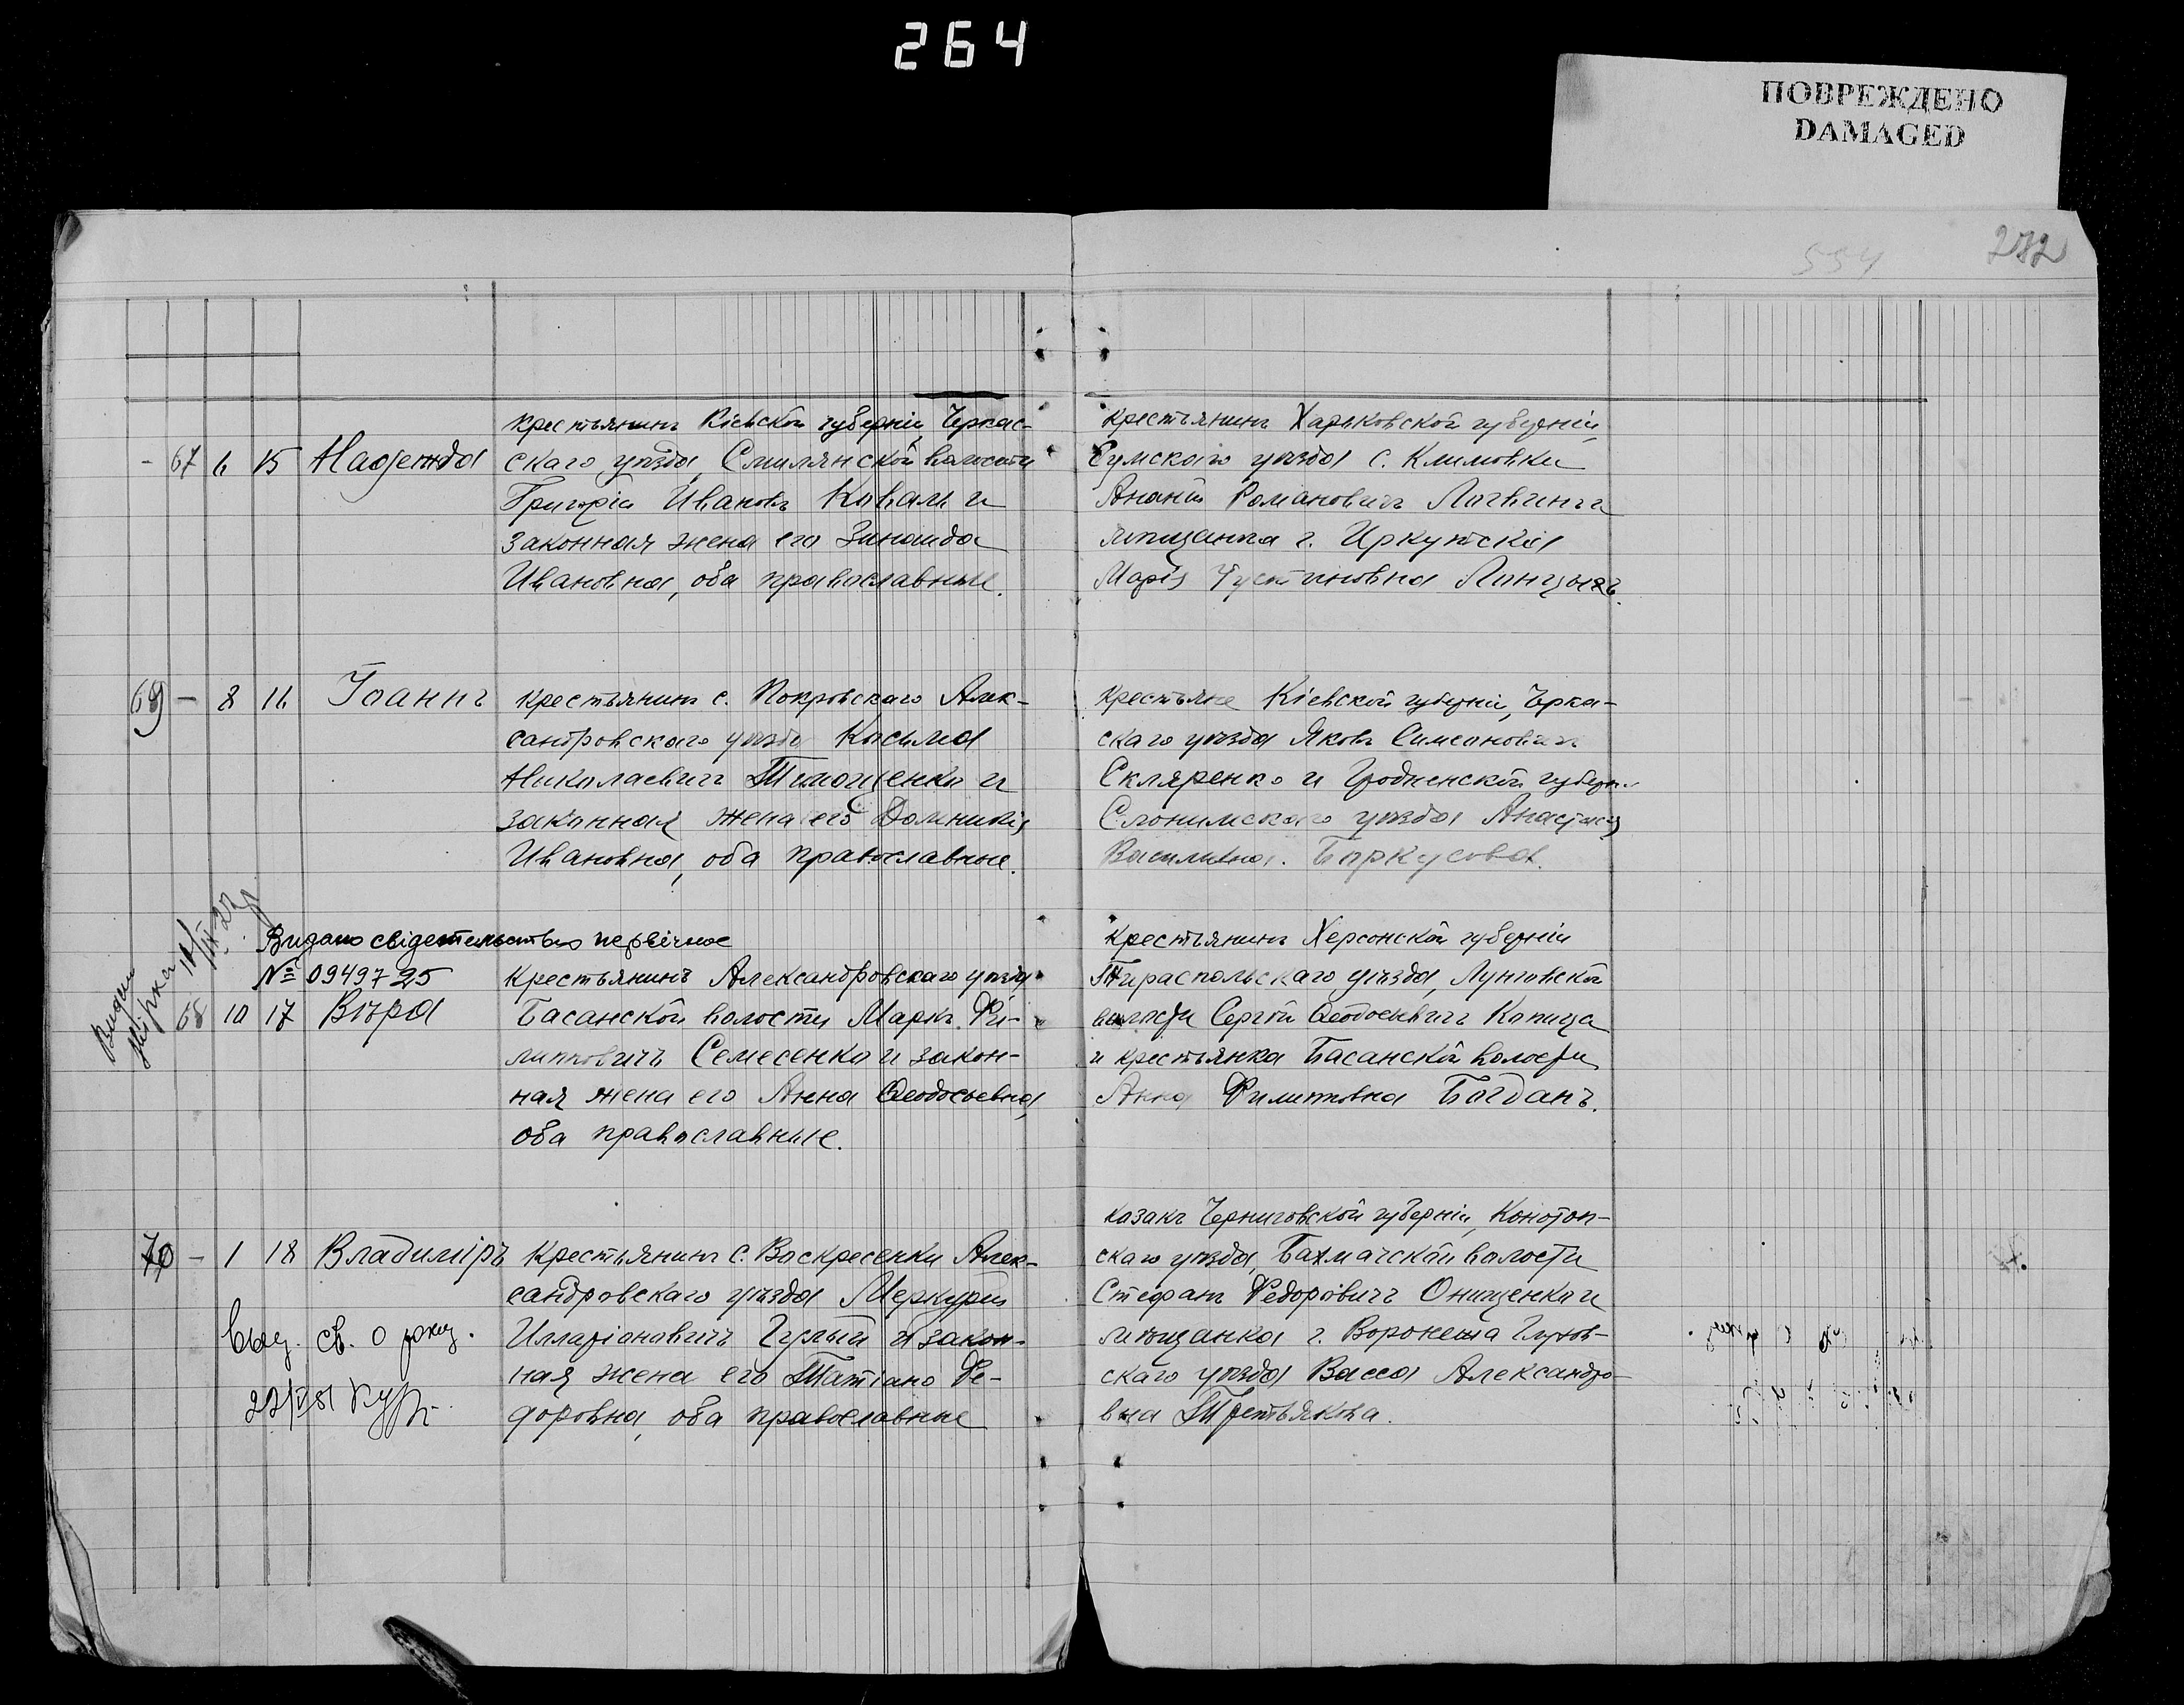 264
ПОВРЕЖДЕНО
DAMAGED
282
554
крестьянинъ Кіевской губерніи, Черкас-
- 67 6 15 Надежда скаго уѣзда, Смилянской волости
Григорій Ивановъ Коваль и
законная жена его Зинаида
Ивановна, оба православные.
крестьянинъ Харьковской губерніи,
Сумскаго уѣзда с. Климовки
Ананій Романовичъ Логвинъ и
мѣщанка г. Иркутска
Марія Іустиновна
69 - 8 16 Іоаннъ крестьянинъ с. Покровскаго Алек-
сандровскаго уѣзда Косьма
Николаевичъ Тимошенко и
законная жена его Домникія
Ивановна, оба православные.
крестьяне Кіевской губерніи, Черка-
скаго уѣзда Яковъ Симеоновичъ
Скляренко и Гродненской губерн.
Слонимскаго уѣзда Анастасія
Василивна Боркусова.
Видано свідетельство первічное
№ 0949725
68 10 17 Вѣра
крестьянинъ Александровскаго уѣзда
Басанской волости Маркъ Фи-
липповичъ Семесенко и закон-
ная жена его Анна Ѳеодосьевна,
оба православные.
крестьянинъ Херсонской губерніи
Тираспольскаго уѣзда, Лунговской
волости Сергѣй Ѳеодосьевичъ Капица
и крестьянка Басанской волости
Анна Филипповна Богданъ.
70 - 1 18 Владиміръ крестьянинъ с. Воскресенки Алек-
сандровскаго уѣзда Меркурій
Илларіоновичъ Гулый и закон-
ная жена его Татіана Ѳе-
доровна, оба православные
выд. св. о рожд.
22/V 51
казакъ Черниговской губерніи, Конотоп-
скаго уѣзда, Бахмачской волости
Стефанъ Федоровичъ Онищенко и
мѣщанка г. Воронежа Глухов-
скаго уѣзда Васса Александро-
вна Третьякова.